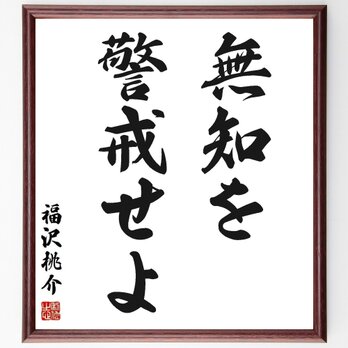 無知を
警戒せよ
福沢桃介